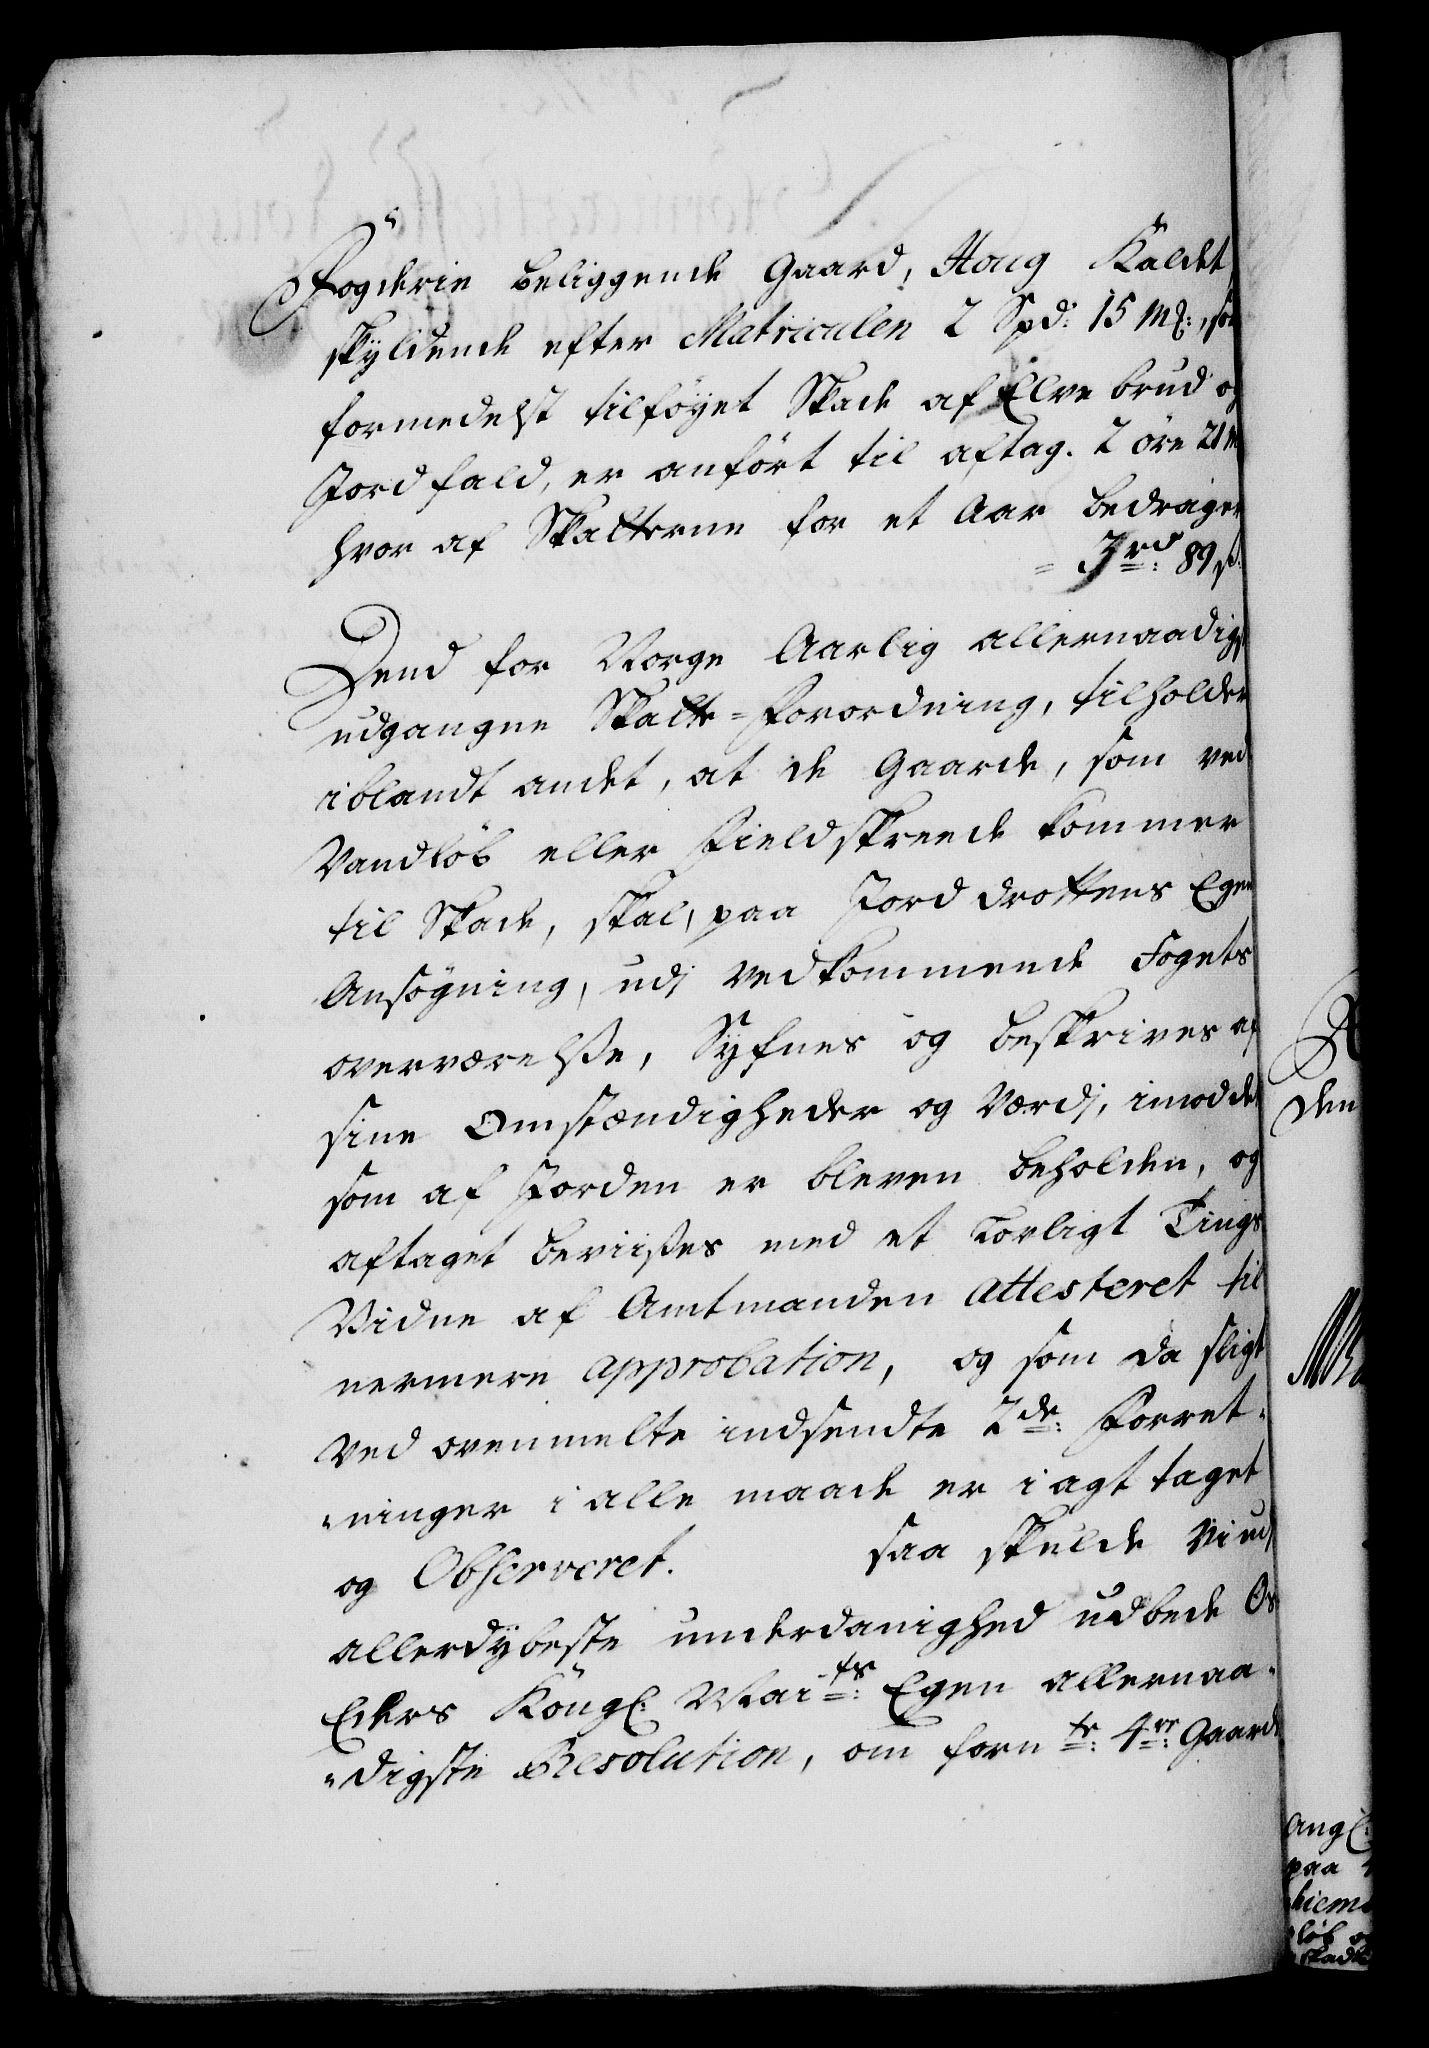 Fogderie beliggende Gaard, Houg Kaldet,
skyldende efter Matriculen 2 Spd: 15 Mk:, som
formedelst tilføyet Skade af Elve brud og
Jordfald, er anført til aftag. 2 öre 21 M
hvor af Skatterne for et Aar bedrager
= 3 rd: 89 s:
Dend for Norge Aarlig allernaadigst
udgangne Skatte-Forordning, tilholder
iblandt andet, at de Gaarde, som ved
Vandløb eller Fieldskreede kommer
til Skade, skal, paa Jorddrottens Egen
Ansøgning, udj vedkommende Fogets
overværelse, Syfnes og beskrives af
sine Omstændigheder og Værdj, imod det
som af Jorden er bleven beholden, og
aftaget beviises med et Lovligt Tings
Vidne af Amtmanden attesteret til
nermere approbation, og som da sligt
ved ovenmelte indsendte 2de: Forret-
ninger i alle maade er i agt taget
og Observeret. saa skulde Vi udj
allerdybeste underdanighed udbede Os
Eders Kongl: Mai-ts: Egen allernaa-
digste Resolution, om forn-te: 4re: Gaarde
den
Angl:
paa
hiem
løb
skade